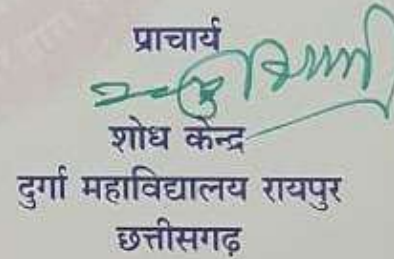 प्राचार्य
शोध केन्द्र
दुर्गा महाविद्यालय रायपुर
छत्तीसगढ़